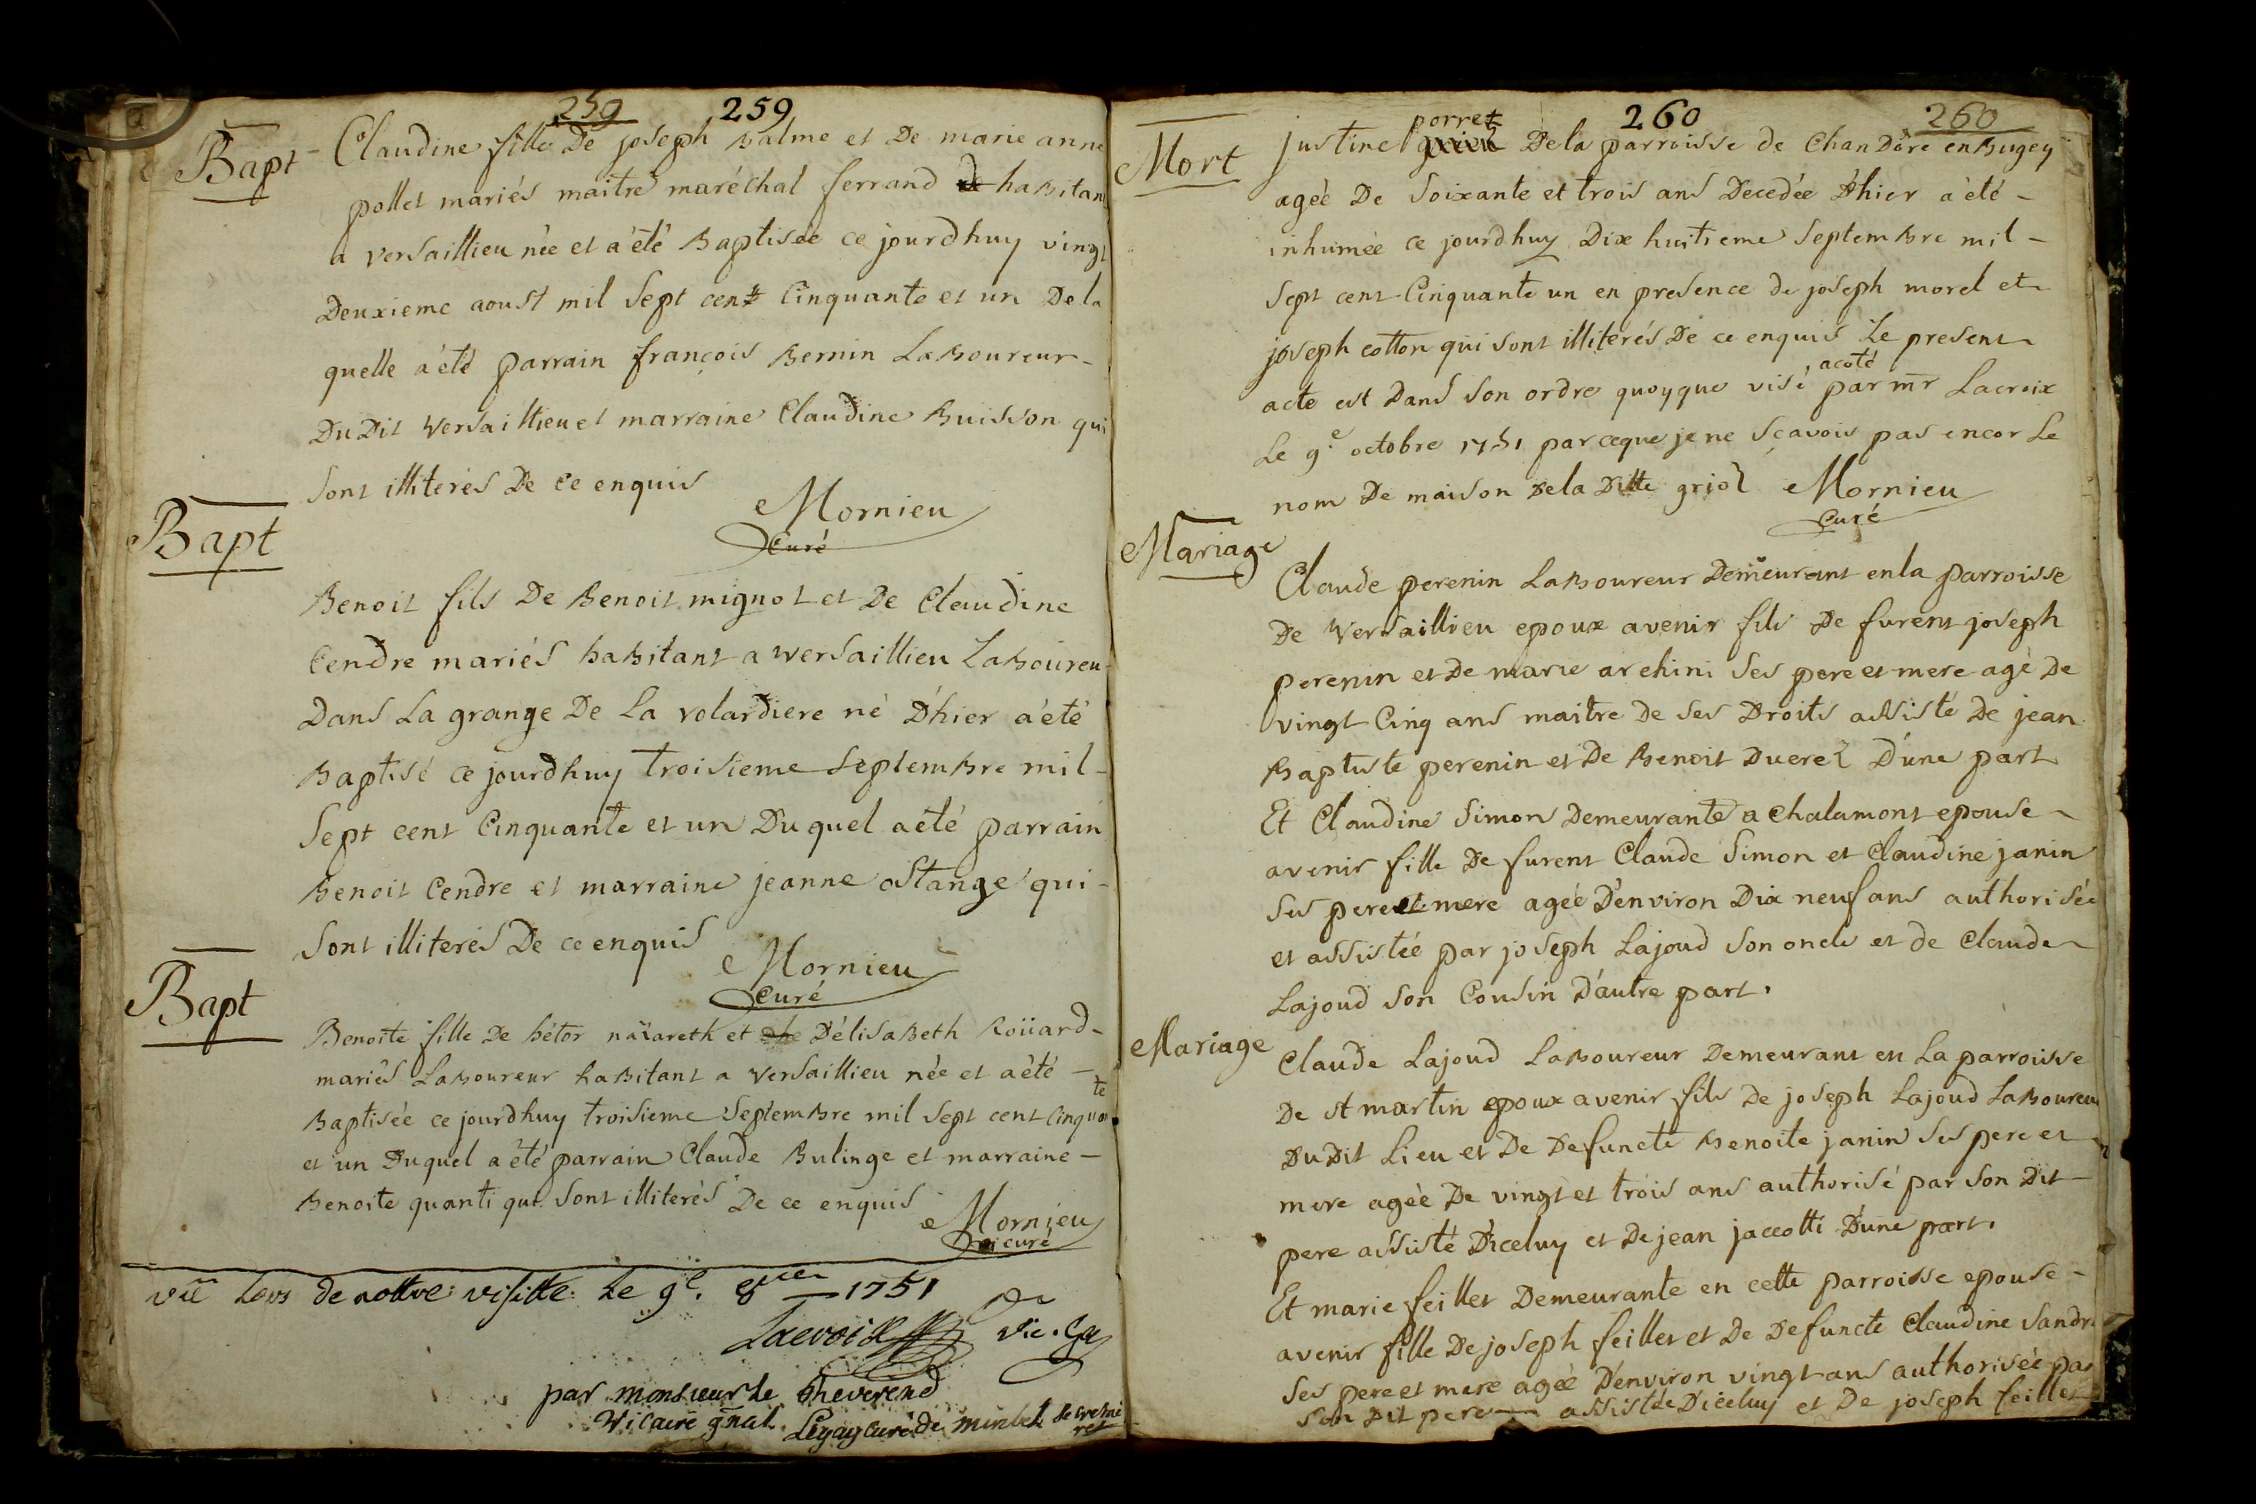 259 259
Bapt
Claudine fille De joseph Balme et De marie anne
pollet mariés maitre maréchal ferrand habitant
a versaillieu née et a été Baptisée ce jourdhuy vingt
Deuxieme aoust mil sept cent Cinquante et un De la
quelle a été parrain françois Bernin Laboureur
Du Dit versaillieu et marraine Claudine Buisson qui
sont illiterés De ce enquis
Mornieu
Curé
Bapt
Benoit fils De Benoit mignot et De Claudine
Cendre mariés habitant a versaillieu Laboureu
Dans La grange De La volardiere né D'hier a été
Baptisé ce jourdhuy troisieme septembre mil
sept cent Cinquante et un Du quel a été parrain
Benoit Cendre et marraine jeanne Stange qui
sont illiterés De ce enquis
Mornieu
Curé
Bapt
Benoite fille De hétor naïareth et D'élisabeth Roüard
mariés Laboureur habitant a versaillieu née et a été
Baptisée ce jourdhuy troisieme septembre mil sept cent Cinquante
et un Duquel a été parrain Claude Bulinge et marraine
Benoite quanti qui sont illiterés De ce enquis
Mornieu
curé
vû Lors de nottre visitte Le 9e. 8 1751
Lacroix vic. g
par monsieur Le Reverend
Vicaire gñal. Legay curé de
260 260
Mort
porret
justine De la parroisse de Chandore en Bugey
agée De soixante et trois ans Decedée D'hier a été
inhumée ce jourdhuy Dix huitieme septembre mil
sept cent Cinquante un en presence de joseph morel et
joseph cotton qui sont illiterés De ce enquis Le present
acte est Dans son ordre quoyque visé acoté par mr Lacroix
Le 9e octobre 1751 parceque je ne sçavois pas encor Le
nom De maison De la Ditte griol Mornieu
Curé
Mariage
Claude perenin Laboureur Demeurant en la parroisse
De versaillieu epoux avenir fils De furent joseph
perenin et De marie archini ses pere et mere agé De
vingt Cinq ans maitre De ses Droits assisté De jean
Baptiste perenin et De Benoit Dueret D'une part
Et Claudine simon Demeurante a Chalamont epouse
avenir fille De furent Claude simon et Claudine janin
ses pere et mere agée D'environ Dix neuf ans authorisée
et assistée par joseph Lajoud son oncle et de Claude
Lajoud son Cousin D'autre part.
Mariage
Claude Lajoud Laboureur Demeurant en La parroisse
De st martin epoux avenir fils De joseph Lajoud Laboureur
Du Dit Lieu et De Defuncte Benoite janin ses pere et
mere agée De vingt et trois ans authorisé par son Dit
pere assisté D'iceluy et De jean jaccotti D'une part.
Et marie feillet Demeurante en cette parroisse epouse
avenir fille De joseph feillet et De Defuncte Claudine sandr
ses pere et mere agée D'environ vingt ans authorisée par
son Dit pere assistée D'iceluy et De joseph feillet